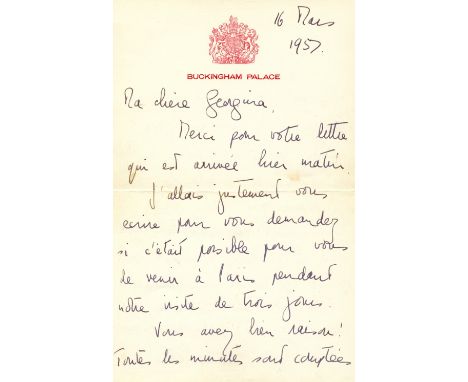 16 Mars
1957.
BUCKINGHAM PALACE
Ma chère Georgina,
Merci pour votre lettre
qui est arrivée hier matin.
J'allais justement vous
ecrire pour vous demandez
si c'était possible pour vous
de venir à Paris pendant
notre visite de trois jours.
Vous avez bien raison!
Toutes les minutes sont comptées